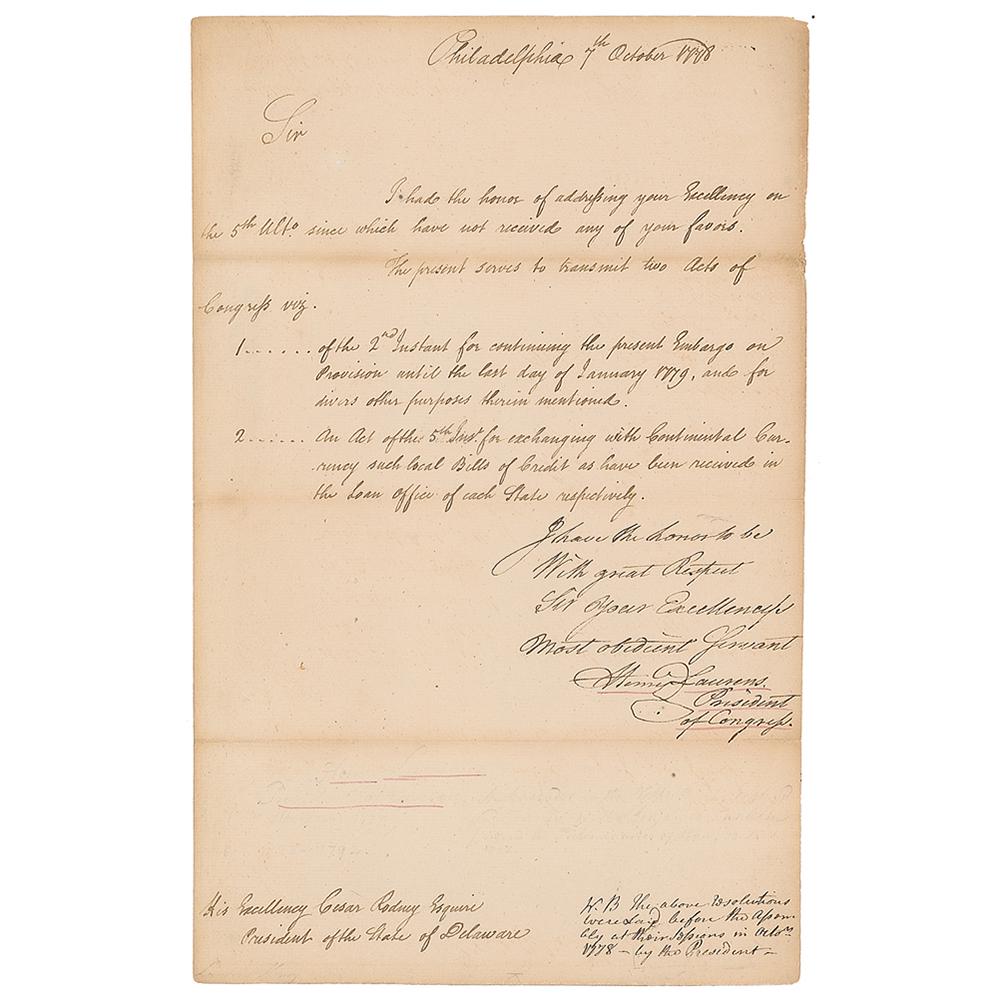 Philadelphia 7th October 1778
Sir
I had the honor of addressing your Excellency on
the 5th Ulto. since which have not received any of your favors.
The present serves to transmit two Acts of
Congress viz.
1 ...... of the 2nd Instant for continuing the present Embargo on
Provision until the last day of January 1779, and for
divers other purposes therein mentioned.
2 ...... An Act of the 5th Inst. for exchanging with Continental Cur-
rency such local Bills of Credit as have been received in
the Loan Office of each State respectively.
I have the honor to be
With great Respect
Sir Your Excellency's
Most obedient Servant
Henry Laurens.
President
of Congress.
His Excellency Cesar Rodney Esquire
President of the State of Delaware
N.B The above resolutions
were laid before the Assem
bly at their Sessions in Octor
1778 – by the President –